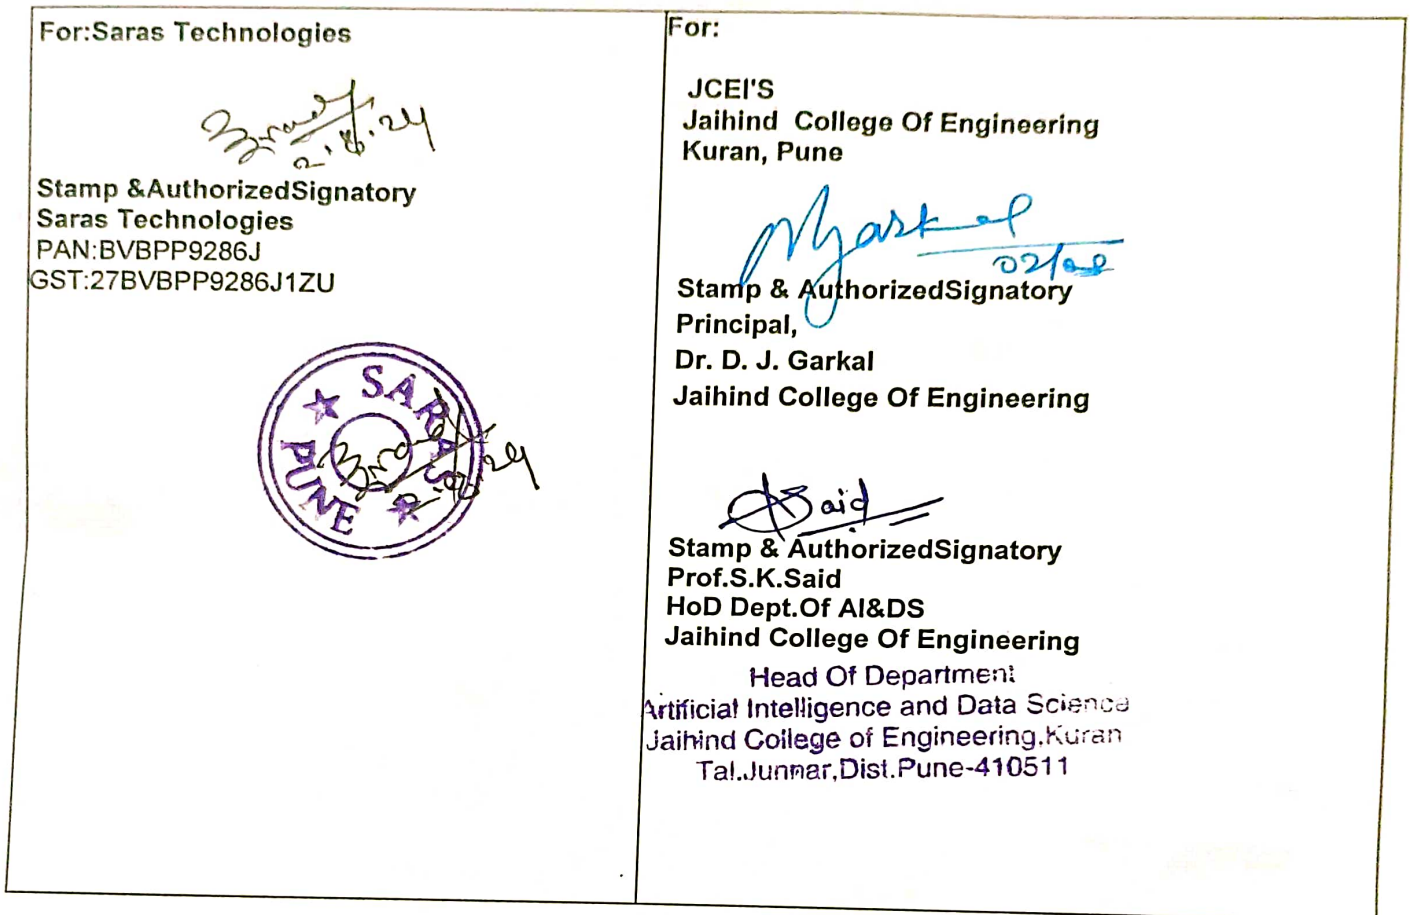 For:Saras Technologies
2.8.24
Stamp &AuthorizedSignatory
Saras Technologies
PAN:BVBPP9286J
GST:27BVBPP9286J1ZU
SARAS
PUNE
2.8.24
For:
JCEI'S
Jaihind College Of Engineering
Kuran, Pune
02/08
Stamp & AuthorizedSignatory
Principal,
Dr. D. J. Garkal
Jaihind College Of Engineering
Said
Stamp & AuthorizedSignatory
Prof.S.K.Said
HoD Dept.Of AI&DS
Jaihind College Of Engineering
Head Of Department
Artificial Intelligence and Data Science
Jaihind College of Engineering,Kuran
Tal.Junnar,Dist.Pune-410511